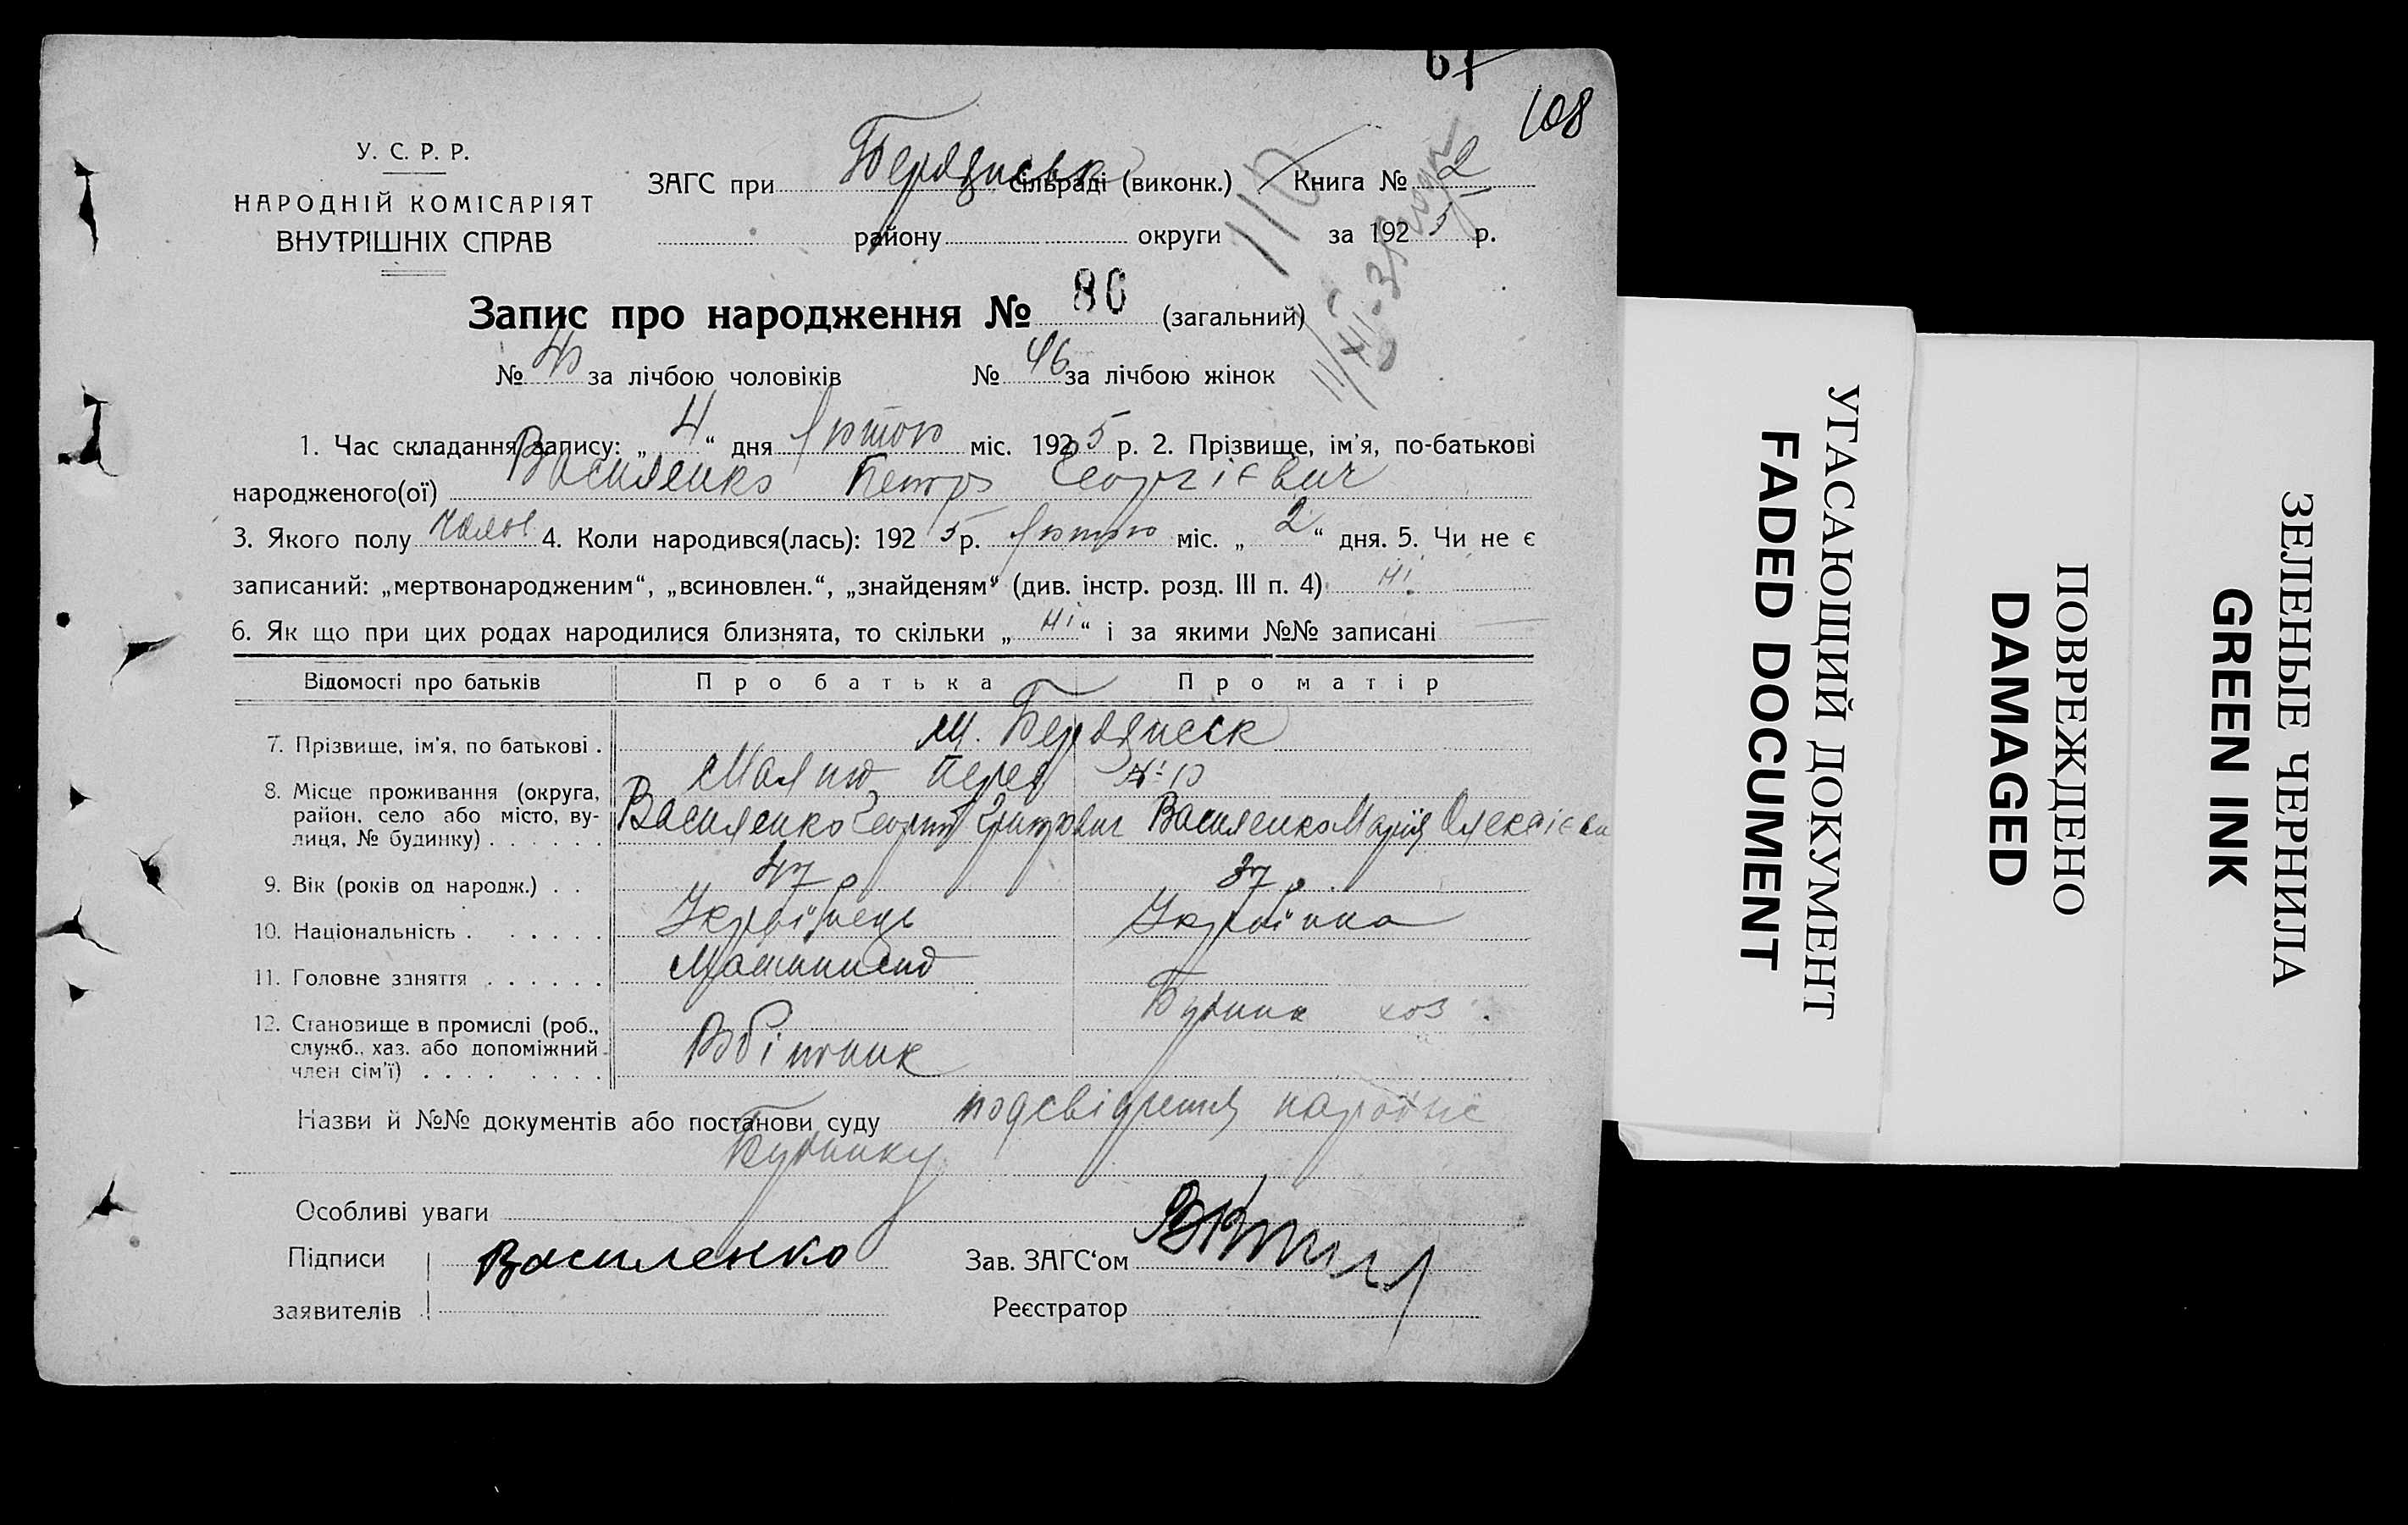 108
У. С. Р. Р.
НАРОДНІЙ КОМІСАРІЯТ
ВНУТРІШНІХ СПРАВ
ЗАГС при Бердянськ сільраді (виконк.) Книга № 2
району округи за 1925 р.
110
Запис про народження № 86 (загальний)
№ 40 за лічбою чоловіків № 46 за лічбою жінок
1. Час складання запису: „4“ дня Лютого міс. 1925 р. 2. Прізвище, ім'я, по-батькові
народженого(ої) Василенко Петро Георгієвич
3. Якого полу чолов 4. Коли народився(лась): 1925 р. Лютого міс. „2“ дня. 5. Чи не є
записаний: „мертвонародженим“, „всиновлен.“, „знайденям“ (див. інстр. розд. III п. 4) ні
6. Як що при цих родах народилися близнята, то скільки „ні“ і за якими №№ записані
Відомості про батьків Про батька Про матір
м. Бердянськ
7. Прізвище, ім'я, по батькові .
8. Місце проживання (округа,
район, село або місто, ву-
лиця, № будинку) . . . . . .
Василенко Георгій Василенко Марія
9. Вік (років од народж.) . . 47 р 37 р.
10. Національність . . . . . . Українець Українка
11. Головне заняття . . . . . . Машинист
12. Становище в промислі (роб.,
служб., хаз. або допоміжний
член сім'ї) . . . . . . . .
хоз.
Назви й №№ документів або постанови суду
Особливі уваги
Підписи Василенко Зав. ЗАГС'ом
заявителів Реєстратор
УГАСАЮЩИЙ ДОКУМЕНТ
FADED DOCUMENT
ПОВРЕЖДЕНО
DAMAGED
ЗЕЛЕНЫЕ ЧЕРНИЛА
GREEN INK